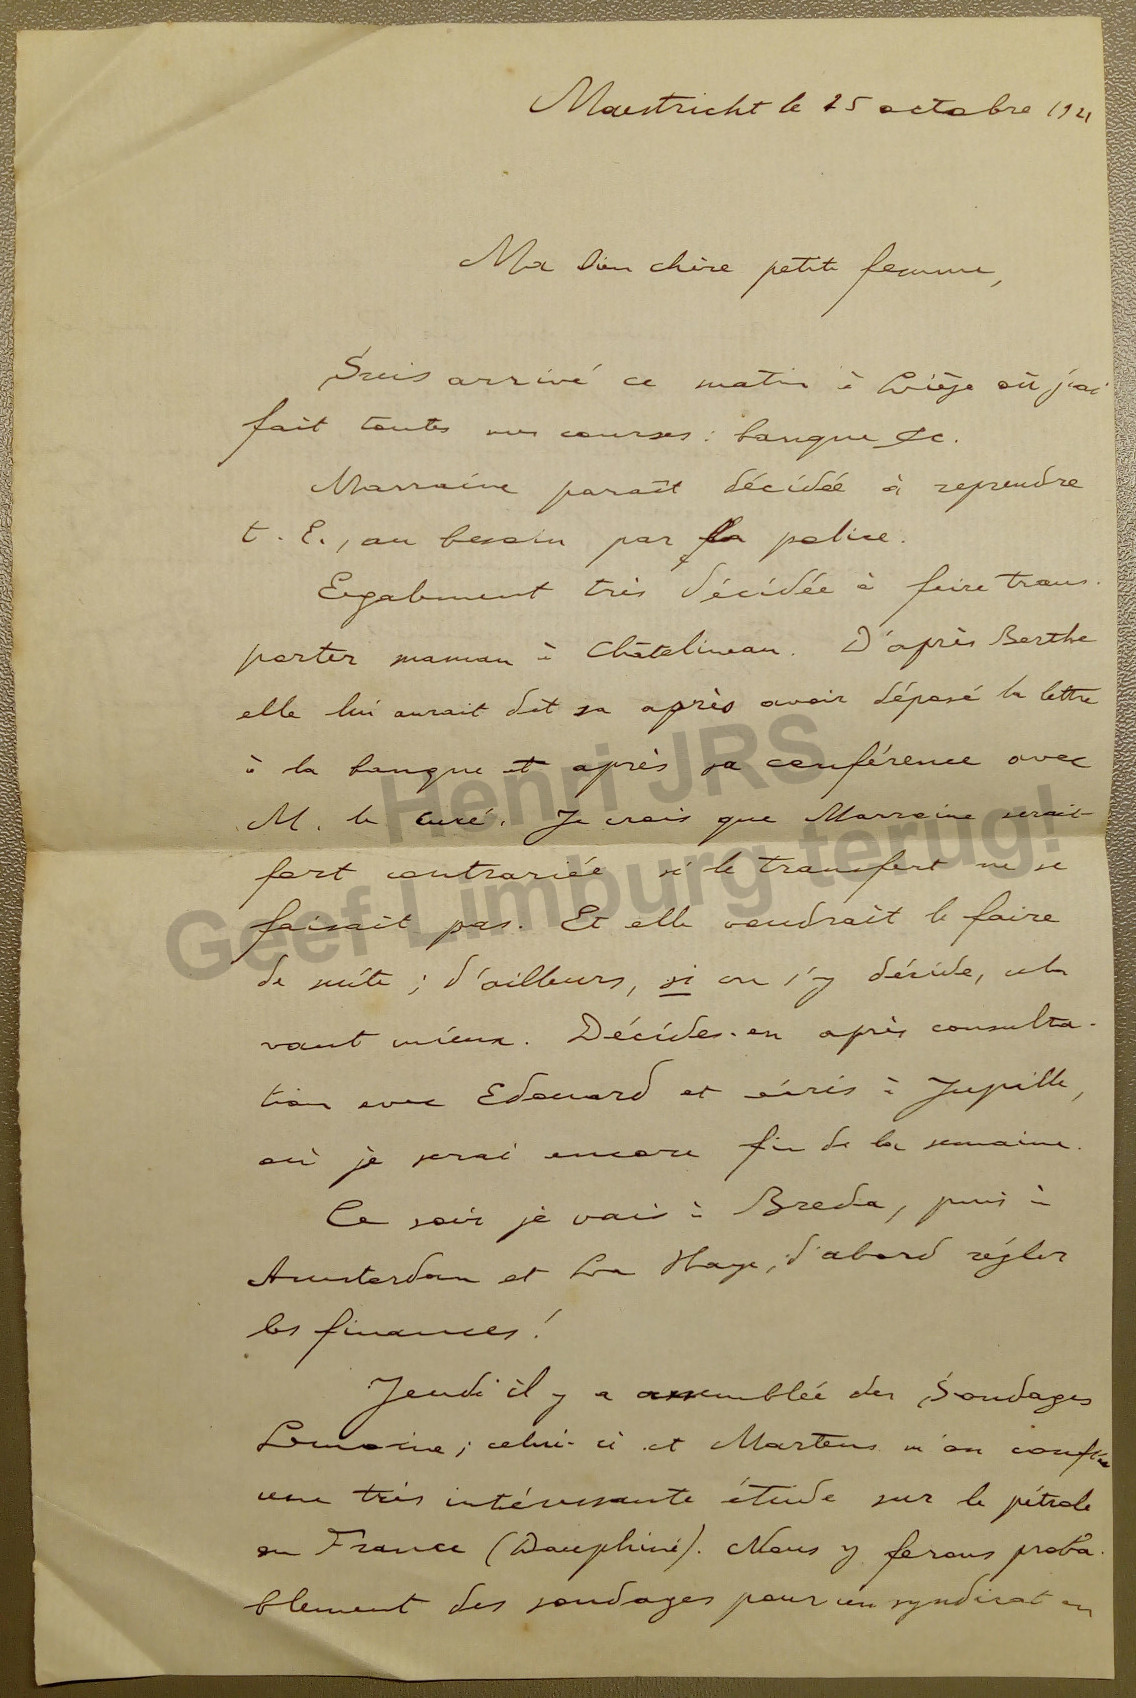 Maestricht le 25 octobre 1921
Ma bien chère petite femme,
Suis arrivé ce matin à Liège où j'ai
fait toutes mes courses : banque &c.
Marraine paraît décidée à reprendre
t. E., au besoin par la police.
Egalement très décidée à faire trans-
porter maman à Châtelineau. D'après Berthe
elle lui aurait dit ça après avoir déposé la lettre
à la banque et après sa conférence avec
M. le curé. Je crois que Marraine serait
fort contrariée si le transfert ne se
faisait pas. Et elle voudrait le faire
de suite ; d'ailleurs, si on s'y décide, cela
vaut mieux. Décides-en après consulta-
tion avec Edouard et écris à Jupille,
où je serai encore fin de la semaine.
Ce soir je vais à Breda, puis à
Amsterdam et La Haye, d'abord régler
les finances !
Jeudi il y a assemblée des Sondages
Lemoine ; celui-ci et Martens m'on confié
une très intéressante étude sur le pétrole
en France (Dauphiné). Nous y ferons proba-
blement des sondages pour un syndicat en
Henri JRS
Geef Limburg terug!